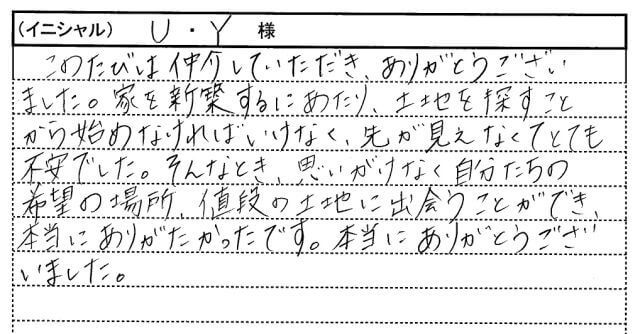 (イニシャル) U・Y 様
このたびは仲介していただき、ありがとうござい
ました。家を新築するにあたり、土地を探すこと
から始めなければいけなく、先が見えなくてとても
不安でした。そんなとき、思いがけなく自分たちの
希望の場所、値段の土地に出会うことができ、
本当にありがたかったです。本当にありがとうござ
いました。